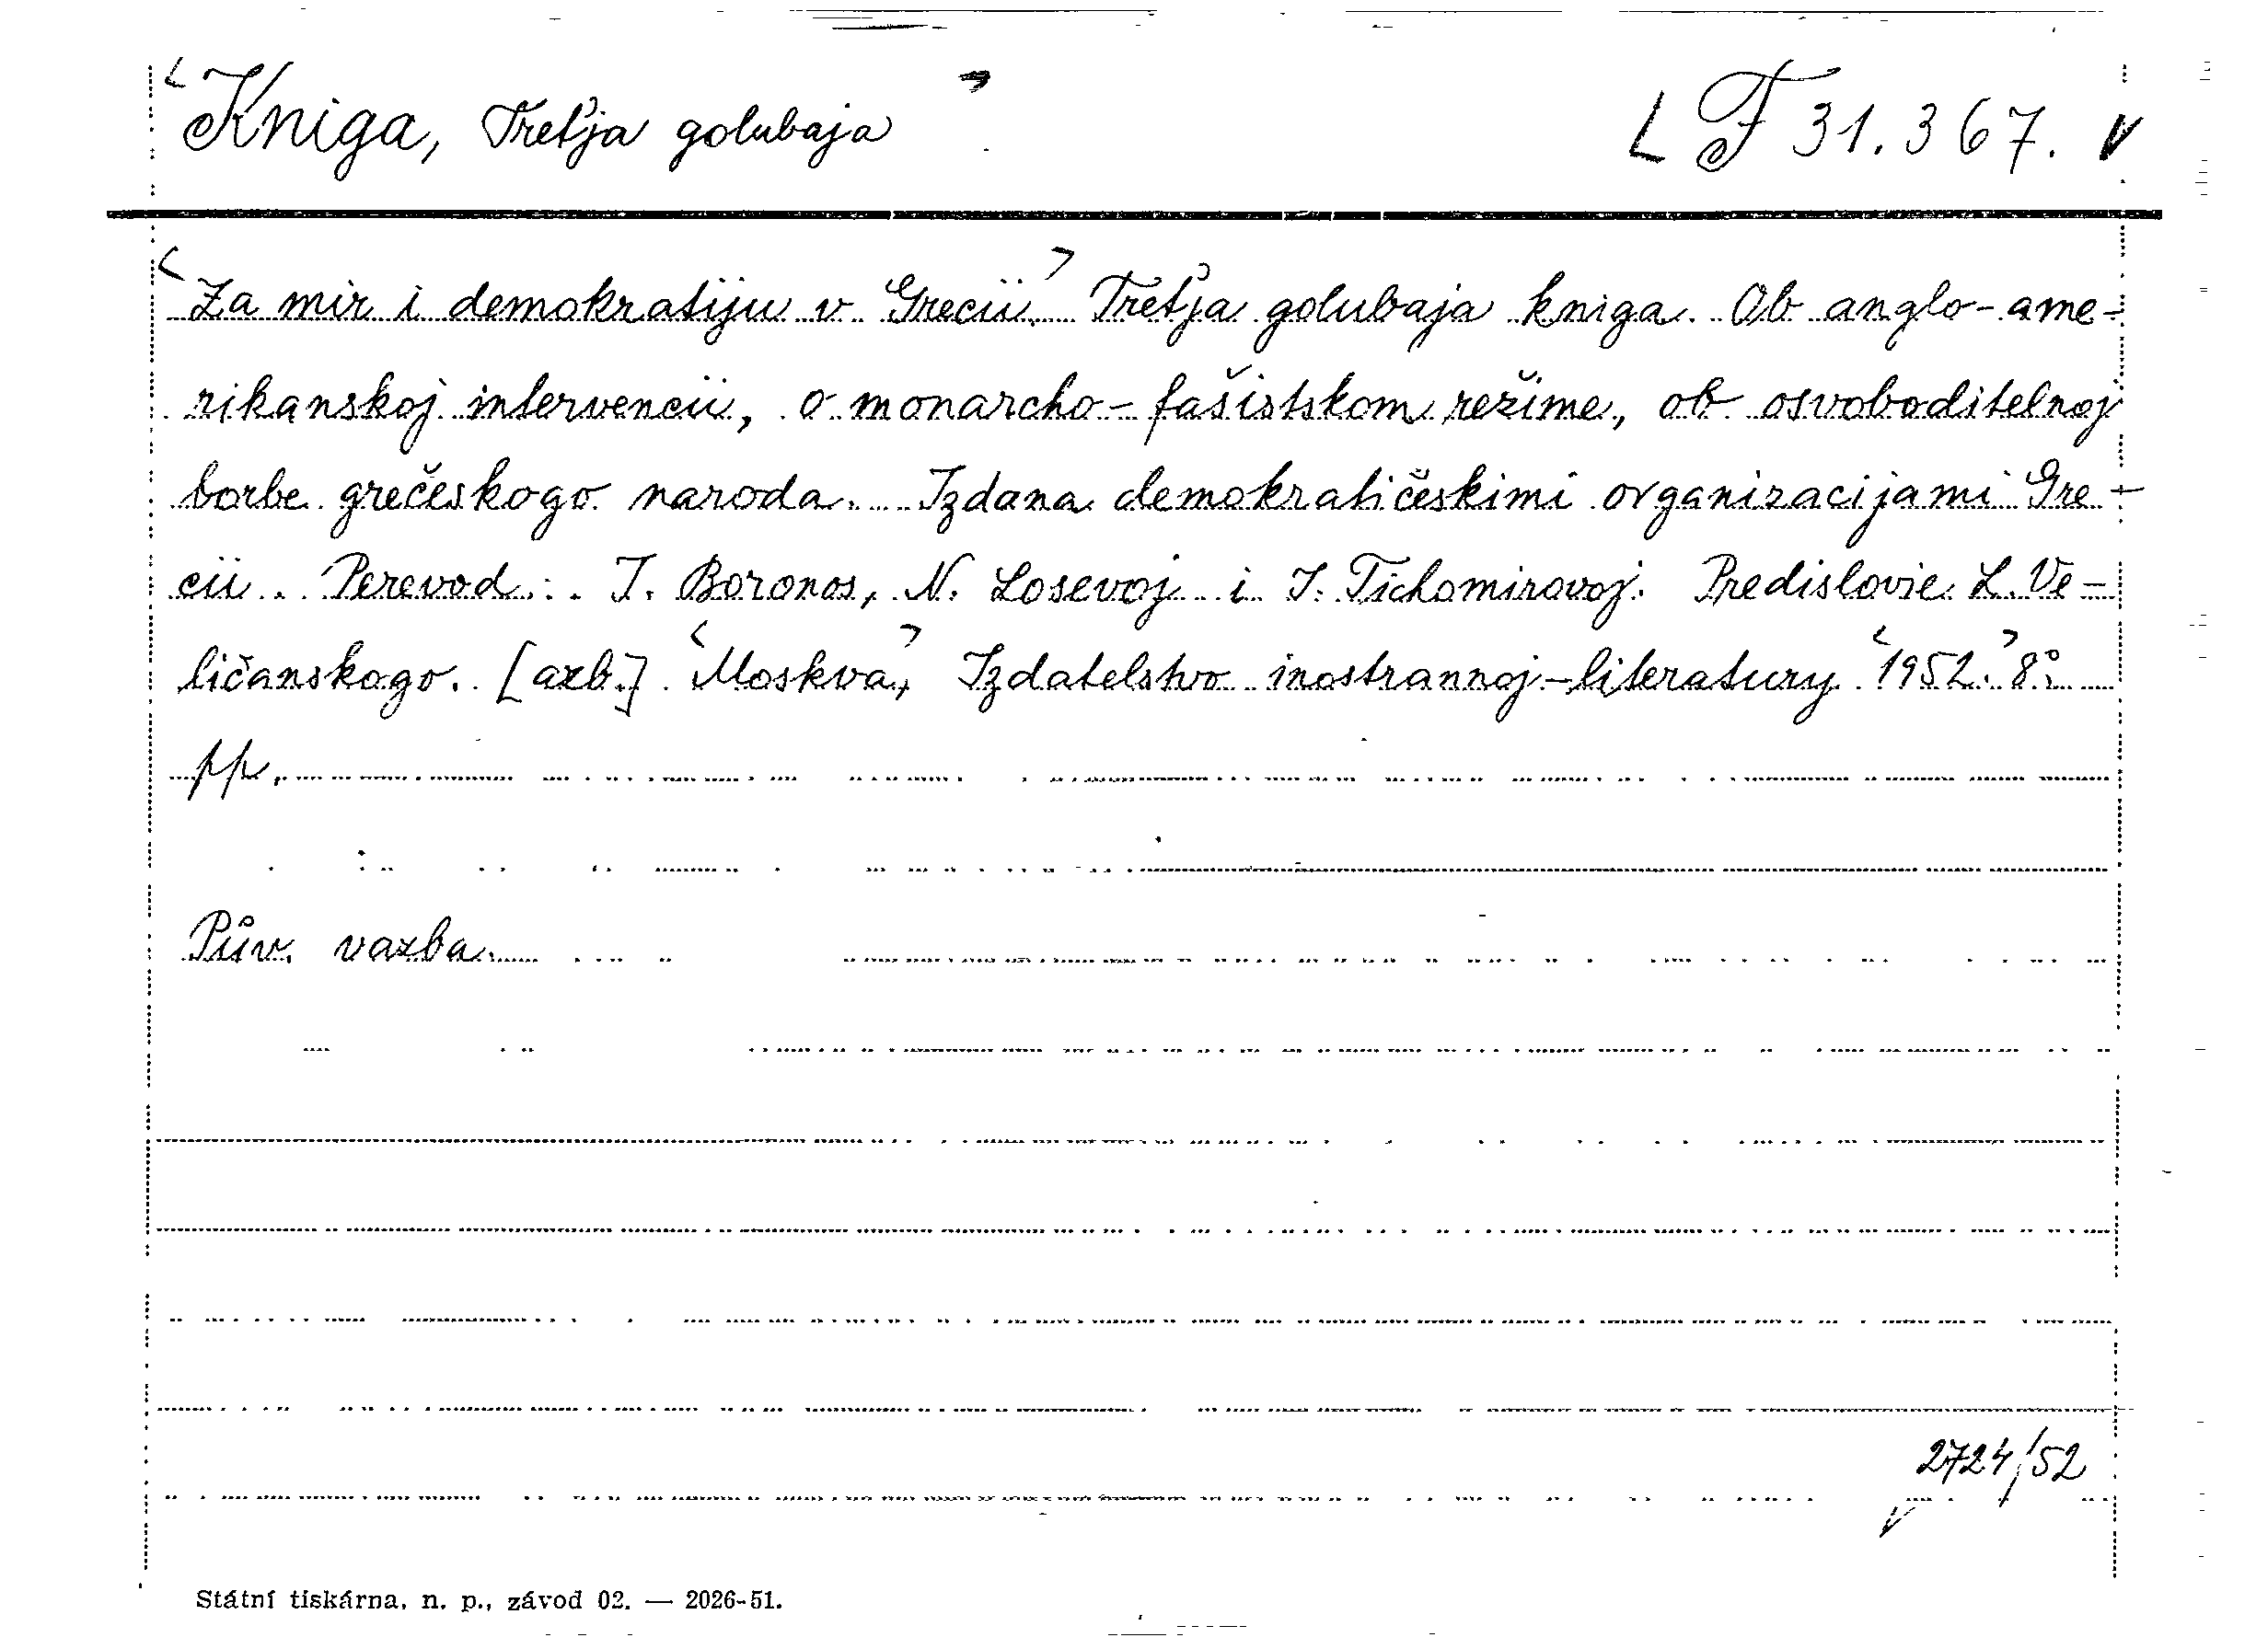 Kniga, Treťja golubaja F 31.367.
Za mir i demokratiju v Grecii. Treťja golubaja kniga. Ob anglo-ame-
rikanskoj intervencii, o monarcho-fašistskom režime, ob osvoboditelnoj
borbe grečeskogo naroda. Izdana demokratičeskimi organizacijami Gre-
cii. Perevod: I. Boronos, N. Losevoj i I. Tichomirovoj. Predislovie L. Ve-
ličanskogo. [azb.] Moskva, Izdatelstvo inostrannoj-literatury 1952. 8°.
pp.
Pův. vazba.
2724/52
Státní tiskárna, n. p., závod 02. — 2026-51.